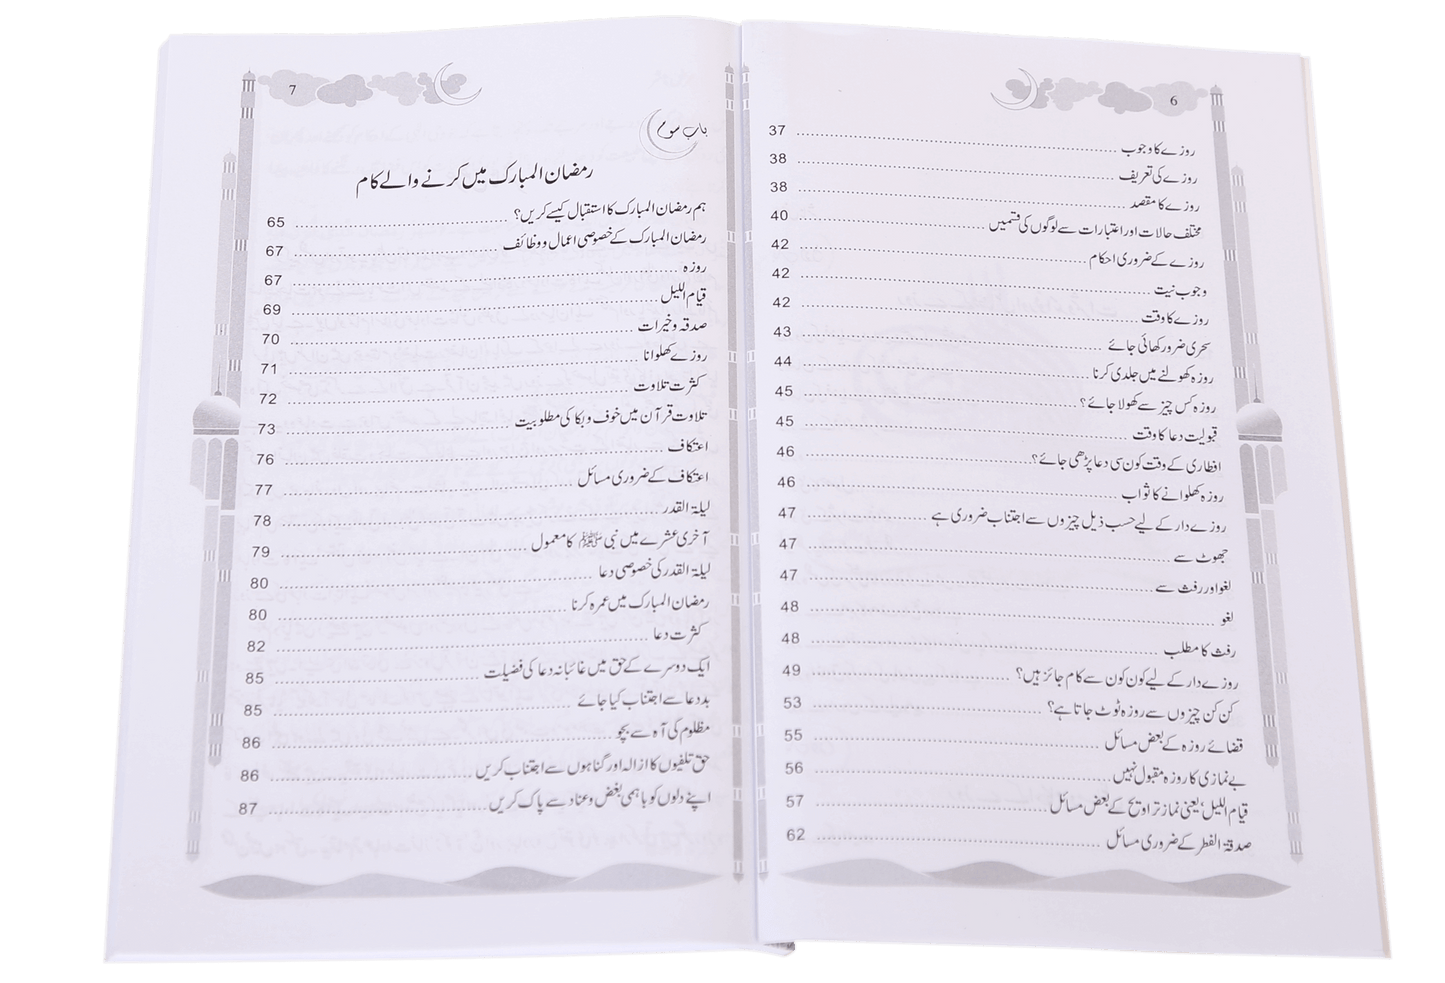 6
روزے کا وجوب ........ 37
روزے کی تعریف ........ 38
روزے کا مقصد ........ 38
مختلف حالات اور اعتبارات سے لوگوں کی قسمیں ........ 40
روزے کے ضروری احکام ........ 42
وجوب نیت ........ 42
روزے کا وقت ........ 42
سحری ضرور کھائی جائے ........ 43
روزہ کھولنے میں جلدی کرنا ........ 44
روزہ کس چیز سے کھولا جائے؟ ........ 45
قبولیت دعا کا وقت ........ 45
افطاری کے وقت کون سی دعا پڑھی جائے؟ ........ 46
روزہ کھلوانے کا ثواب ........ 46
روزے دار کے لیے حسب ذیل چیزوں سے اجتناب ضروری ہے ........ 47
جھوٹ سے ........ 47
لغو اور رفث سے ........ 47
لغو ........ 48
رفث کا مطلب ........ 48
روزے دار کے لیے کون کون سے کام جائز ہیں؟ ........ 49
کن کن چیزوں سے روزہ ٹوٹ جاتا ہے؟ ........ 53
قضائے روزہ کے بعض مسائل ........ 55
بے نمازی کا روزہ مقبول نہیں ........ 56
قیام اللیل؛ یعنی نماز تراویح کے بعض مسائل ........ 57
صدقۃ الفطر کے ضروری مسائل ........ 62
7
باب سوم
رمضان المبارک میں کرنے والے کام
ہم رمضان المبارک کا استقبال کیسے کریں؟ ........ 65
رمضان المبارک کے خصوصی اعمال و وظائف ........ 67
روزہ ........ 67
قیام اللیل ........ 69
صدقہ و خیرات ........ 70
روزے کھلوانا ........ 71
کثرت تلاوت ........ 72
تلاوت قرآن میں خوف و بکا کی مطلوبیت ........ 73
اعتکاف ........ 76
اعتکاف کے ضروری مسائل ........ 77
لیلۃ القدر ........ 78
آخری عشرے میں نبی ﷺ کا معمول ........ 79
لیلۃ القدر کی خصوصی دعا ........ 80
رمضان المبارک میں عمرہ کرنا ........ 80
کثرت دعا ........ 82
ایک دوسرے کے حق میں غائبانہ دعا کی فضیلت ........ 85
بددعا سے اجتناب کیا جائے ........ 85
مظلوم کی آہ سے بچو ........ 86
حق تلفیوں کا ازالہ اور گناہوں سے اجتناب کریں ........ 86
اپنے دلوں کو باہمی بغض و عناد سے پاک کریں ........ 87